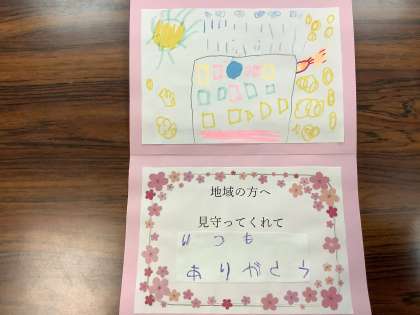 地域の方へ
見守ってくれて
いつも
ありがとう